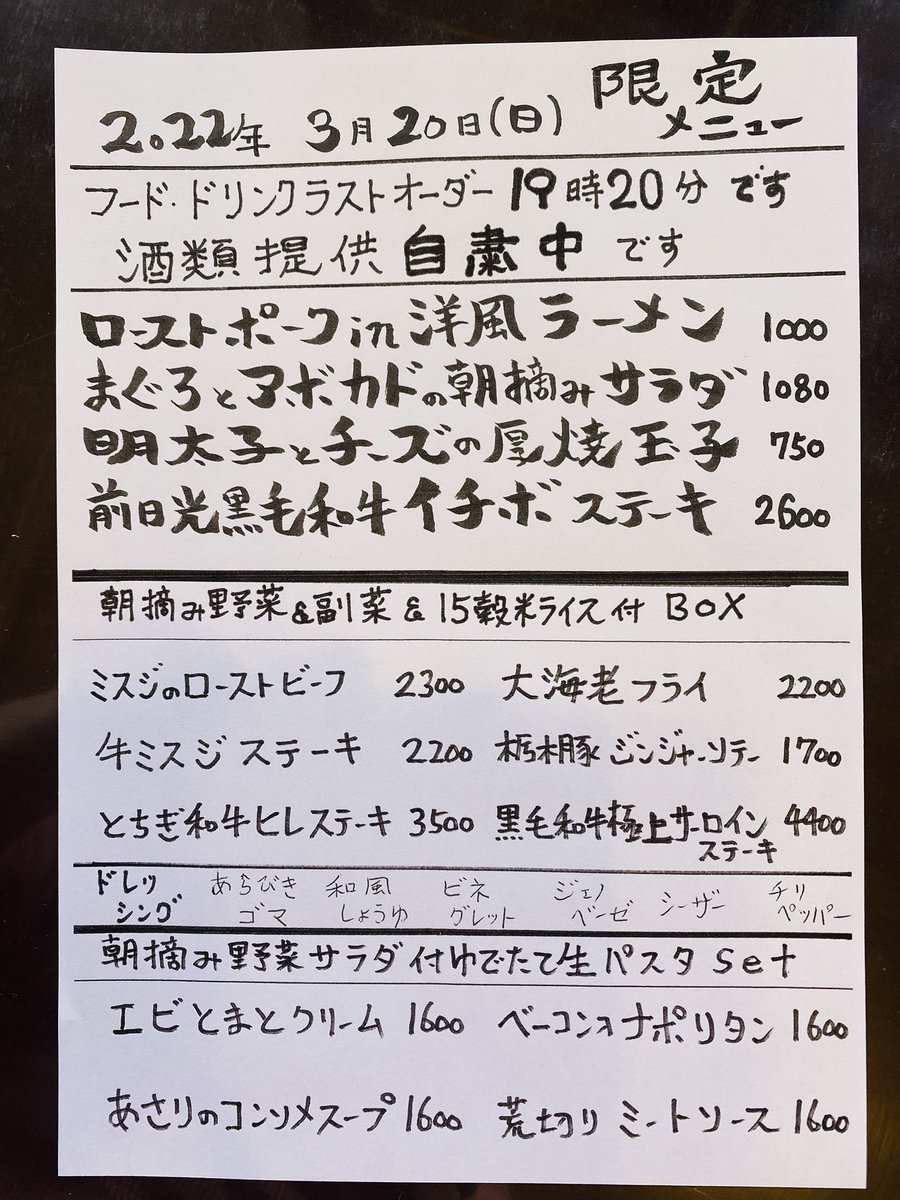 2022年 3月20日(日) 限定メニュー
フード・ドリンクラストオーダー 19時20分 です
酒類提供 自粛中 です
ローストポーク in 洋風ラーメン 1000
まぐろとアボカドの朝摘みサラダ 1080
明太子とチーズの厚焼玉子 750
前日光黒毛和牛イチボステーキ 2600
朝摘み野菜&副菜&15穀米ライス付 BOX
ミスジのローストビーフ 2300 大海老フライ 2200
牛ミスジステーキ 2200 栃木豚ジンジャーソテー 1700
とちぎ和牛ヒレステーキ 3500 黒毛和牛極上サーロインステーキ 4400
ドレッシング あらびきゴマ 和風しょうゆ ビネグレット ジェノベーゼ シーザー チリペッパー
朝摘み野菜サラダ付ゆでたて生パスタ set
エビとまとクリーム 1600 ベーコンonナポリタン 1600
あさりのコンソメスープ 1600 荒切りミートソース 1600